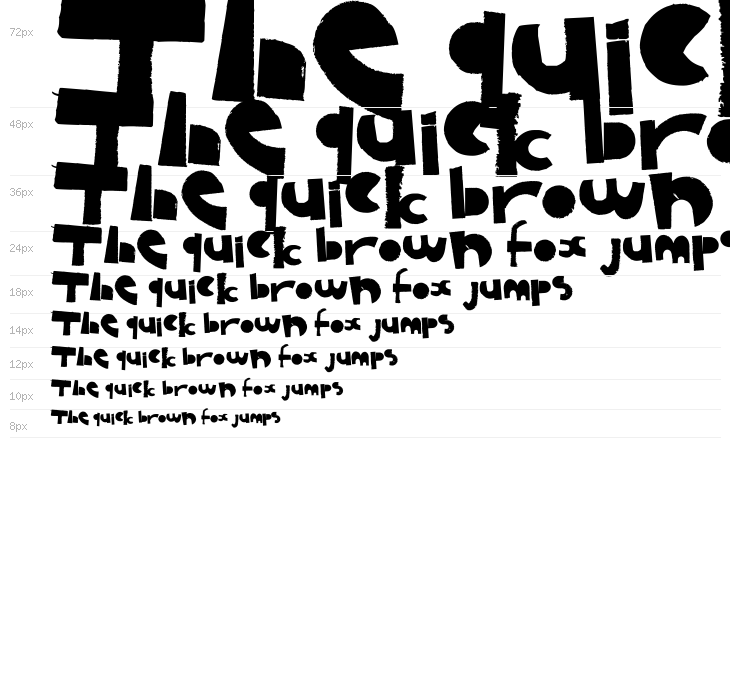 72px The quick
48px The quick bro
36px The quick brown
24px The quick brown fox jumps
18px The quick brown fox jumps
14px The quick brown fox jumps
12px The quick brown fox jumps
10px The quick brown fox jumps
8px The quick brown fox jumps